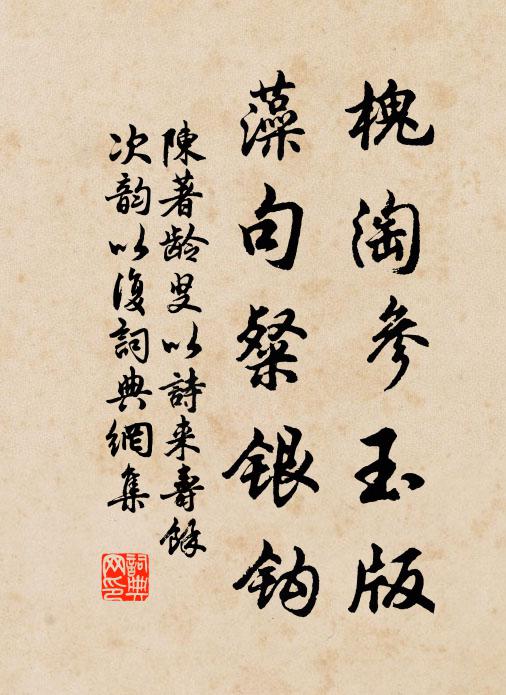 槐淘參玉版
藻句粲銀鈎
陳著龄叟以詩来壽餘
次韵以復詞典網集
詞典网印